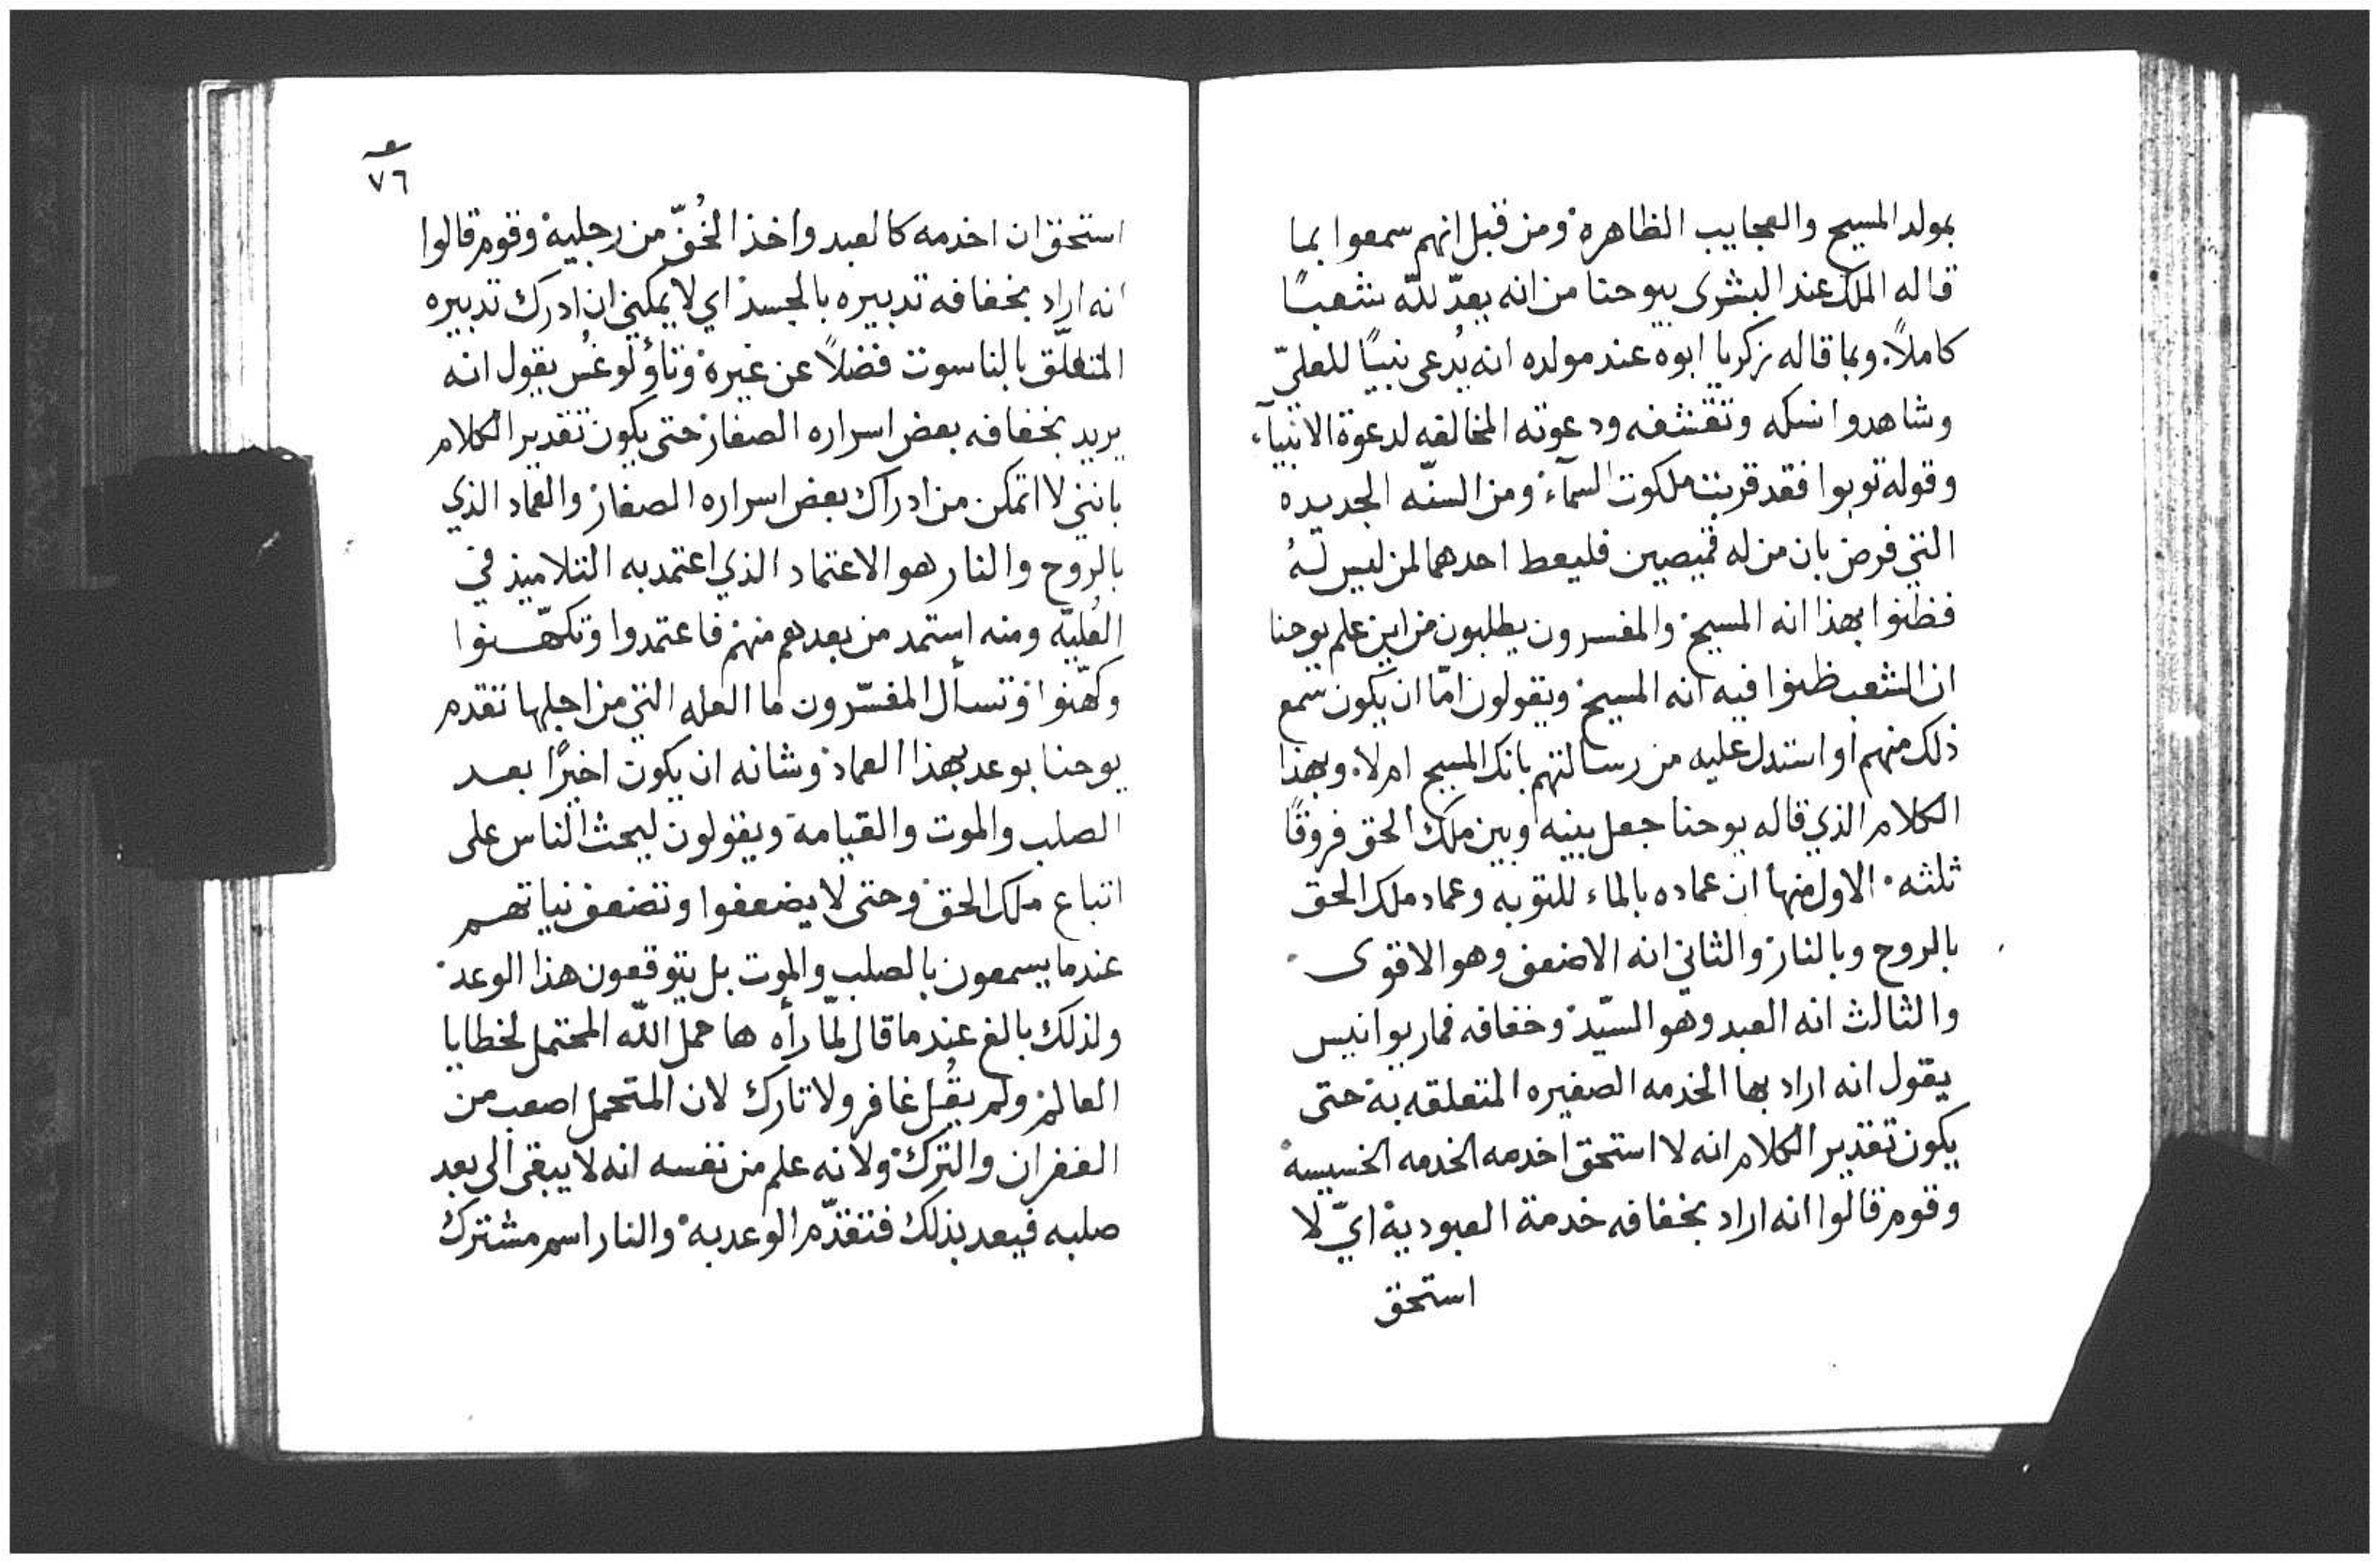 بمولد المسيح والعجايب الظاهرة ومن قبل انهم سمعوا بما
قاله الملك عند البشرى بيوحنا من انه يعدّ للّه شعبًا
كاملاً. وبما قاله زكريا ابوه عند مولده انه يُدعى نبيًا للعليّ
وشاهدوا نسكه وتقشفه ودعوته المخالفه لدعوة الانبيآء
وقوله توبوا فقد قربت ملكوت السمآء ومن السنّه الجديده
التي فرض بان من له قميصين فليعط احدهما لمن ليس لهُ
فظنوا بهذا انه المسيح والمفسرون يطلبون من اين علم يوحنا
ان الشعب ظنوا فيه انه المسيح ويقولون امّا ان يكون سمع
ذلك منهم او استدل عليه من رسالتهم بانك المسيح ام لا. وبهذا
الكلام الذي قاله يوحنا جعل بينه وبين ملك الحق فروقًا
ثلثه. الاول منها ان عماده بالماء للتوبه وعماد ملك الحق
بالروح وبالنار والثاني انه الاضعف وهو الاقوى
والثالث انه العبد وهو السيّد وخفافه فماريوانيس
يقول انه اراد بها الخدمه الصغيره المتعلقه به حتى
يكون تقدير الكلام انه لا استحق اخدمه الخدمه الخسيسه
وقوم قالوا انه اراد بخفافه خدمة العبودية ايّ لا
استحق
٧٦
استحق ان اخدمه كالعبد واخذ الخُفّ من رجليه وقوم قالوا
انه اراد بخفافه تدبيره بالجسد اي لا يمكنني ان ادرك تدبيره
المتعلّق بالناسوت فضلاً عن غيره وتاؤلوغُس يقول انه
يريد بخفافه بعض اسراره الصغار حتى يكون تقدير الكلام
بانني لا اتمكن من ادراك بعض اسراره الصغار والعماد الذي
بالروح والنار هو الاعتماد الذي اعتمد به التلاميذ في
العُليّه ومنه استمد من بعدهم منهم فاعتمدوا وتكهّنوا
وكهّنوا وتسأل المفسّرون ما العله التي من اجلها تقدم
يوحنا بوعد بهذا العماد وشانه ان يكون اخيرًا بعد
الصلب والموت والقيامة ويقولون ليحث الناس على
اتباع ملك الحق وحتى لا يضعفوا وتضعف نياتهم
عندما يسمعون بالصلب والموت بل يتوقعون هذا الوعد
ولذلك بالغ عندما قال لمّا رأه ها حمل اللّه المحتمل لخطايا
العالم ولم يقُل غافر ولا تارك لان المتحمل اصعب من
الغفران والترك ولانه علم من نفسه انه لا يبقى الى بعد
صلبه فيعد بذلك فتقدّم الوعد به والنار اسم مشترك